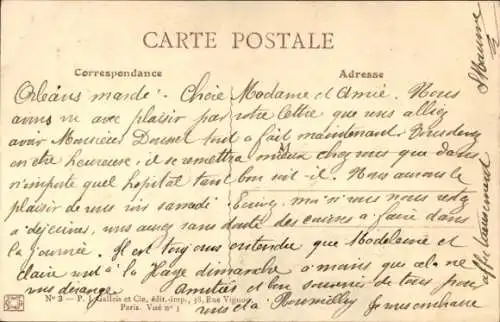 CARTE POSTALE
Correspondance
Adresse
Orléans mardi. Chère Madame et Amie. Nous
avons vu avec plaisir par votre lettre que vous alliez
avoir Monsieur tout à fait maintenant.
en être heureuse, il se remettra mieux chez vous que dans
n'importe quel hopital tant bon soit-il. Nous aurons le
plaisir de vous samedi. moi si vous nous restez
à déjeuner, vous aurez sans doute des courses à faire dans
la journée. Il est toujours entendu que Madeleine et
Claire vont à la Haye dimanche à moins que cela ne
vous dérange. Amitiés et bon souvenir de tous pour
vous et à Je vous embrasse
affectueusement
N° 3 - P. I. Gallais et Cie, édit.-imp., 38, Rue Vignon
Paris. Visé n° 1